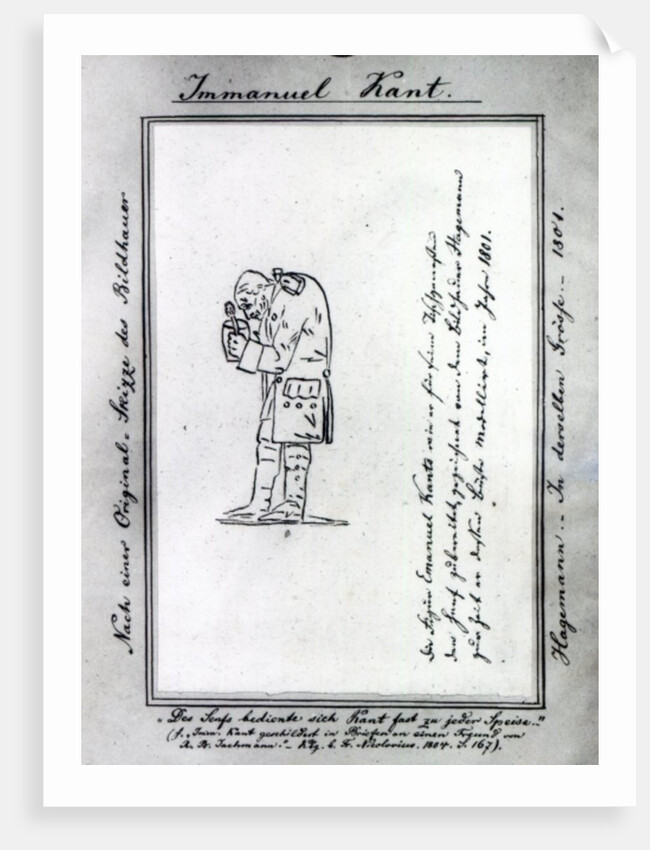 Immanuel Kant.
Nach einer Original-Skizze des Bildhauer
Die Figur Emanuel Kants wie er für seine Tischgenossen
den Senf zubereitet, gezeichnet von dem Bildhauer Hagemann
zur Zeit er dessen Büste modellirte, im Jahre 1801.
Hagemann. – In derselben Grösse. – 1801.
„Des Senfs bediente sich Kant fast zu jeder Speise..“
(s. „Imm. Kant geschildert in Briefen an einen Freund von
R. B. Jachmann.“ – Kbg. b. Fr. Nicolovius. 1804. S. 167).